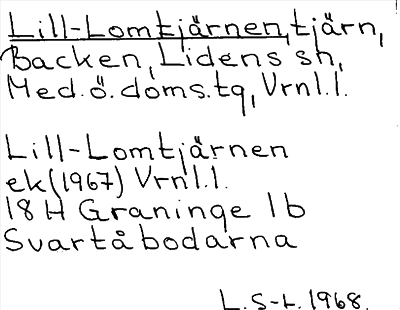 Lill-Lomtjärnen, tjärn,
Backen, Lidens sn,
Med.ö.doms.tg, Vrnl.l.
Lill-Lomtjärnen
ek (1967) Vrnl.l.
18H Graninge 1b
Svartåbodarna
L.S-L. 1968.